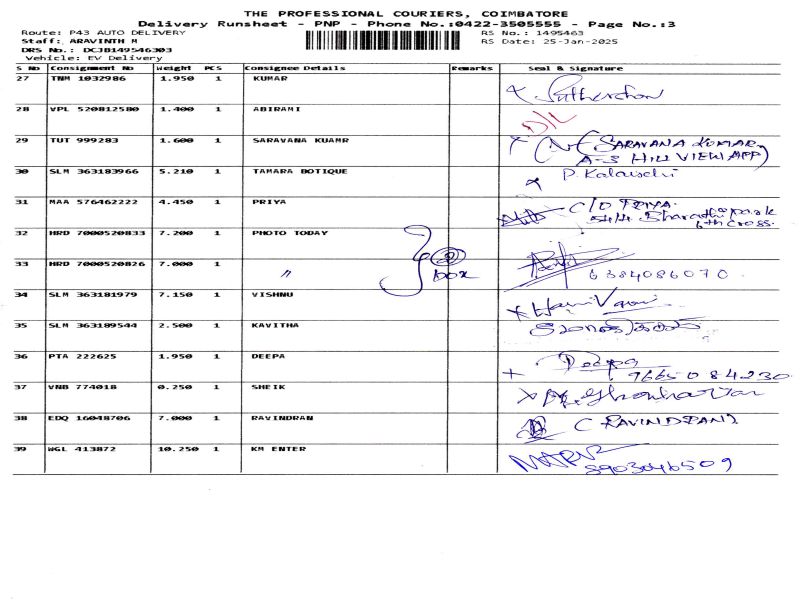 THE PROFESSIONAL COURIERS, COIMBATORE
Delivery Runsheet - PNP - Phone No.:0422-3505555 - Page No.:3
Route: P43 AUTO DELIVERY RS No.: 1495463
Staff: ARAVINTH M RS Date: 25-Jan-2025
DRS No.: DCJB149546303
Vehicle: EV Delivery
S No Consignment No Weight PCS Consignee Details Remarks Seal & Signature
27 TNM 1032986 1.950 1 KUMAR
28 VPL 520812580 1.400 1 ABIRAMI D/L
29 TUT 999283 1.600 1 SARAVANA KUAMR (SARAVANA KUMAR
A-3 HILL VIEW APP)
30 SLM 363183966 5.210 1 TAMARA BOTIQUE P. Kalaiselvi
31 MAA 576462222 4.450 1 PRIYA C/O PRIYA
Bharathi park
6th cross
32 HRD 7000520833 7.200 1 PHOTO TODAY 2
box
33 HRD 7000520826 7.000 1 " 6384086070
34 SLM 363181979 7.150 1 VISHNU
35 SLM 363189544 2.500 1 KAVITHA
36 PTA 222625 1.950 1 DEEPA Deepa
9665084230
37 VNB 774018 0.250 1 SHEIK
38 EDQ 16048706 7.000 1 RAVINDRAN C RAVINDRAN
39 WGL 413872 10.250 1 KM ENTER
8903046509